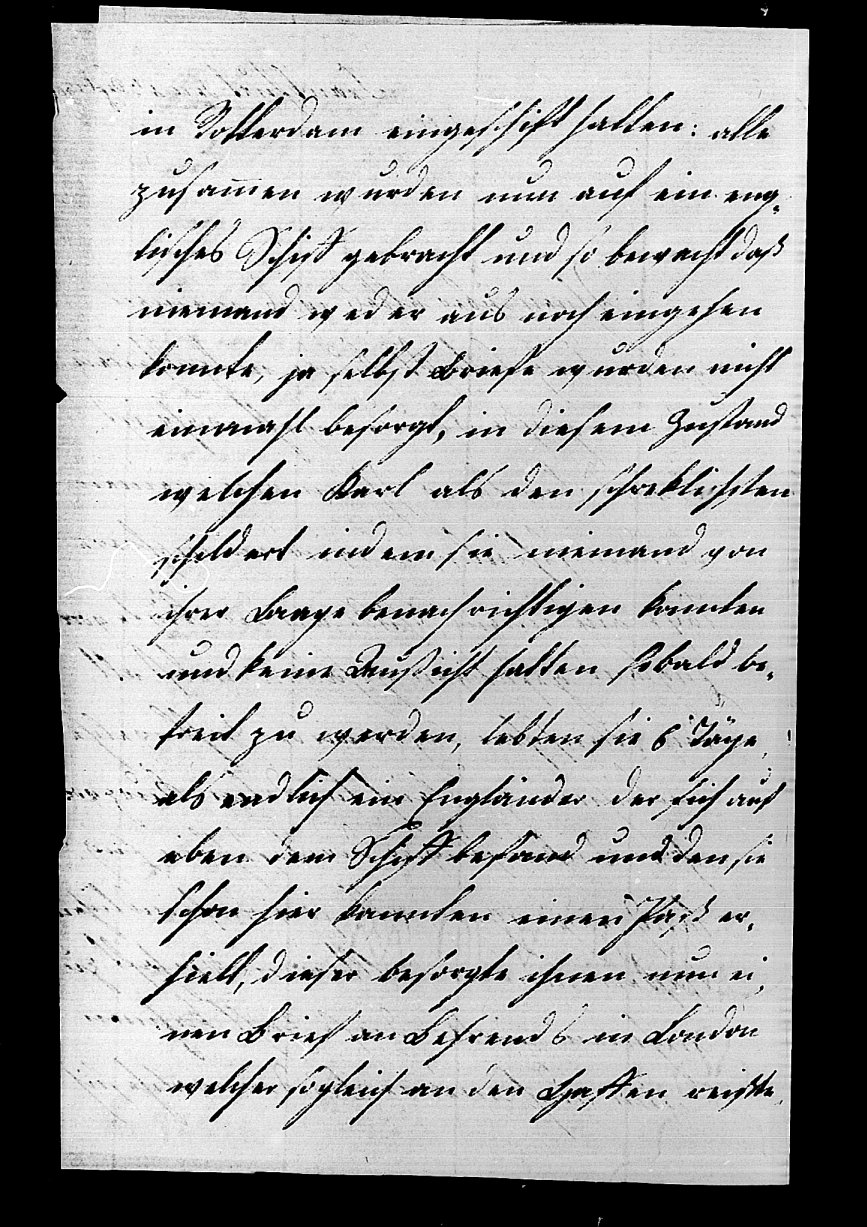 in Rotterdam eingeschift hatten: alle
zusam̄en wurden nun auf ein eng-
lisches Schiff gebracht und so bewacht daß
niemand weder aus noch eingehen
konnte, ja selbst Briefe wurden nicht
einmahl besorgt, in diesem Zustand
welchen Karl als den schreklichsten
schildert indem sie niemand von
ihrer Laage benachrichtigen konnten
und keine Aussicht hatten sobald be-
freit zu werden, lebten sie 6 Täge,
als endlich ein Engländer der sich auf
eben dem Schiff befand und den sie
schon hier kannten einen Paß er-
hielt, dieser besorgte ihnen nun ei-
nen Brief an Behrends in London
welcher sogleich an den Haffen reiste,